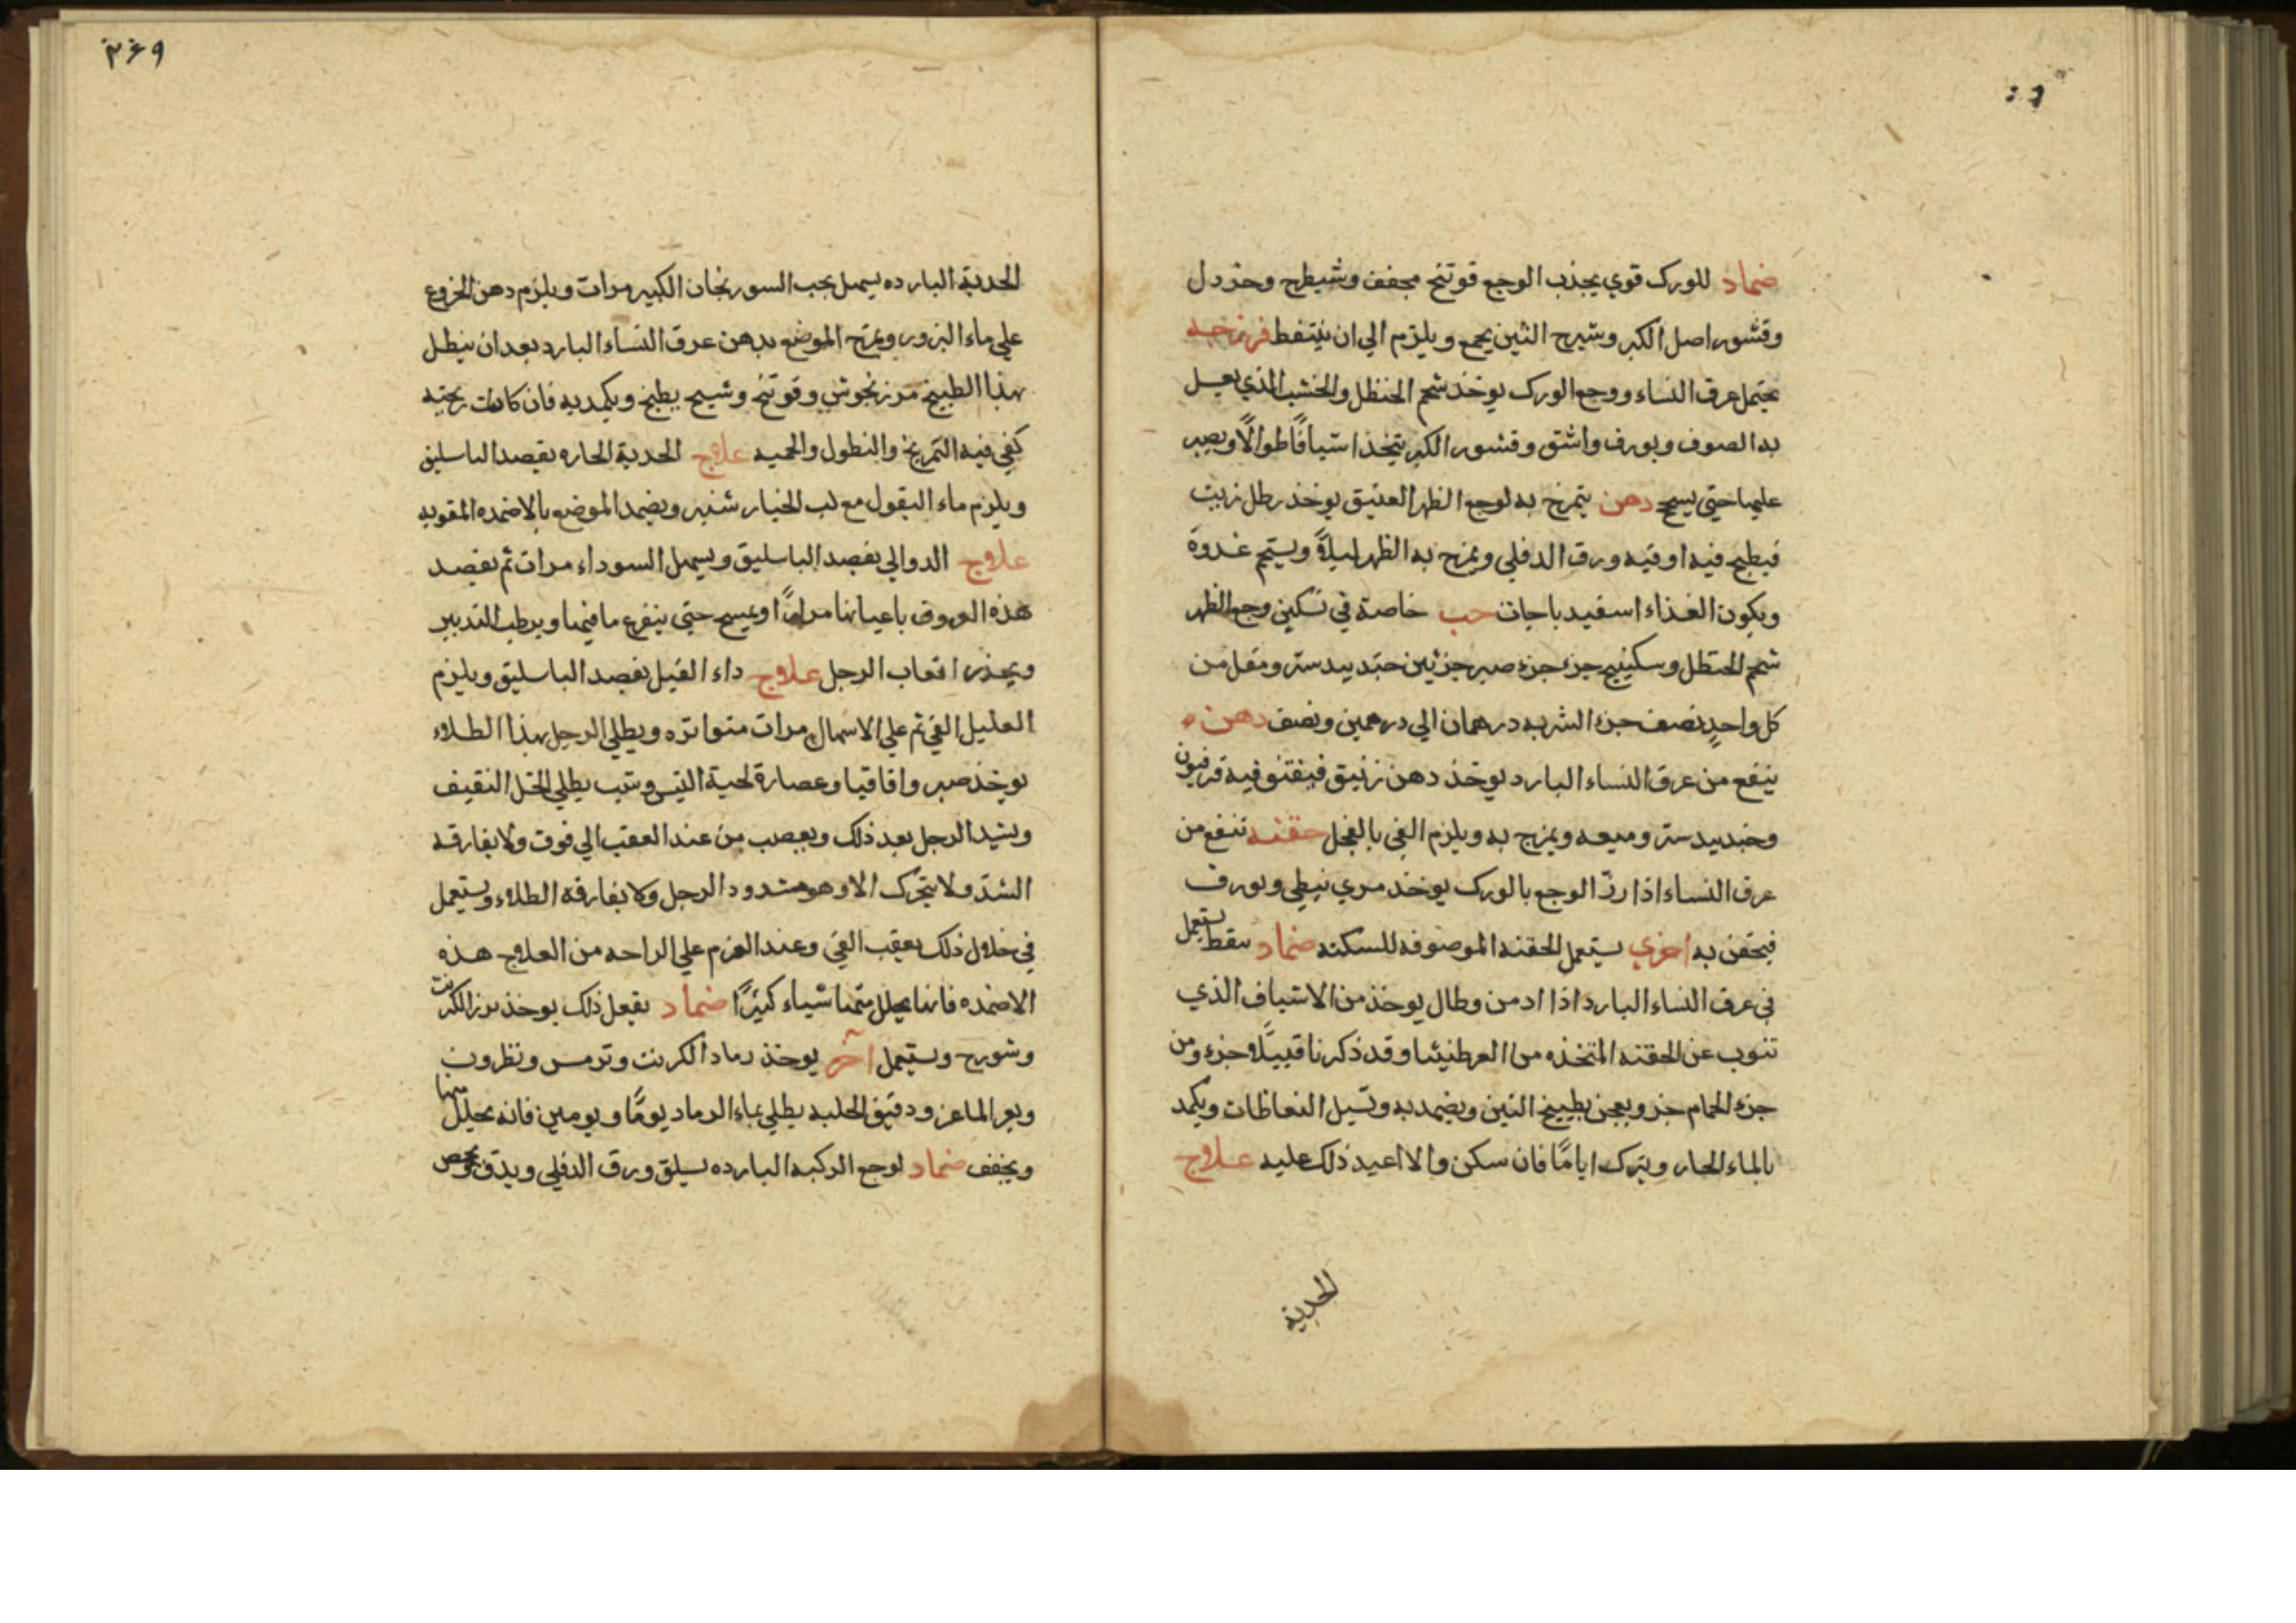 ضماد للورك قوي يجذب الوجع فوتنج مجفف وشيطرج وخردل
وقشور اصل الكبر وشيرج التين يجمع ويلزم الي ان يتنفط فرزجه
يحتمل عرق النساء ووجع الورك يوخذ شحم الحنظل والخشب الذي يغسل
به الصوف وبورق واشق وقشور الكبر يتخذ اشيافًا طوالًا ويصبر
عليها حتي يسحج دهن يتمرخ به لوجع الظهر العتيق يوخذ رطل زيت
فيطبخ فيه اوقيه ورق الدفلي ويمرخ به الظهر ليلةً ويستحم غدوةً
ويكون الغذاء اسفيدباجات حب خاصة في تسكين وجع الظهر
شحم الحنظل وسكبينج جزء جزء صبر جزئين جندبيدستر ومقل من
كل واحدٍ نصف جزء الشربه درهمان الي درهمين ونصف دهن
ينفع من عرق النساء البارد يوخذ دهن زنبق فيفتق فيه فرفيون
وجندبيدستر وميعه ويمرخ به ويلزم القي بالفجل حقنه تنفع من
عرق النساء اذا ردّ الوجع بالورك يوخذ مري نبطي وبورق
فيحقن به اخري يستعمل الحقنه الموصوفه للسكته ضماد ينفط يستعمل
في عرق النساء البارد اذا ادمن وطال يوخذ من الاشياف الذي
تنوب عن الحقنه المتخذه من العرطنيثا وقد ذكرنا قبيلًا جزء ومن
جزء الحمام جزء ويعجن بطبيخ التين ويضمد به وتسيل النفاطات ويكمد
بالماء الحار ويترك ايامًا فان سكن والا اعيد ذلك عليه علاج
الحدبة
۲۶۹
الحدبة البارده يسهل بحب السورنجان الكبير مرات ويلزم دهن الخروع
علي ماء البزور ويمرخ الموضع بدهن عرق النساء البارد بعد ان ينطل
بهذا الطبيخ مرزنجوش وفوتنج وشيح يطبخ ويكمد به فان كانت ريحيه
كفي فيه التمريخ والنطول والحميه علاج الحدبة الحاره يفصد الباسليق
ويلزم ماء البقول مع لب الخيار شنبر ويضمد الموضع بالاضمده المقويه
علاج الدوالي يفصد الباسليق ويسهل السوداء مرات ثم يفصد
هذه العروق باعيانها مرارًا ويمسح حتي يتفرغ ما فيها ويرطب التدبير
ويحذر اتعاب الرجل علاج داء الفيل يفصد الباسليق ويلزم
العليل القي ثم علي الاسهال مرات متواتره ويطلي الرجل بهذا الطلاء
يوخذ صبر واقاقيا وعصارة لحية التيس وشب يطلي بالخل الثقيف
ويشد الرجل بعد ذلك ويعصب من عند العقب الي فوق ولا يفارقه
الشدّ ولا يتحرك الا وهو مشدود الرجل ولا يفارقه الطلاء ويستعمل
في خلال ذلك بعقب القي وعند العزم علي الراحه من العلاج هذه
الاضمده فانها يحلل منها شياء كثيرًا ضماد يفعل ذلك يوخذ بزر الكرنب
وشورج ويستعمل آخر يوخذ رماد الكرنب وترمس ونطرون
وبعر الماعز ودقيق الحلبه يطلي بماء الرماد يومًا ويومين فانه يحلل منها
ويجفف ضماد لوجع الركبه البارده يسلق ورق الدفلي ويدق